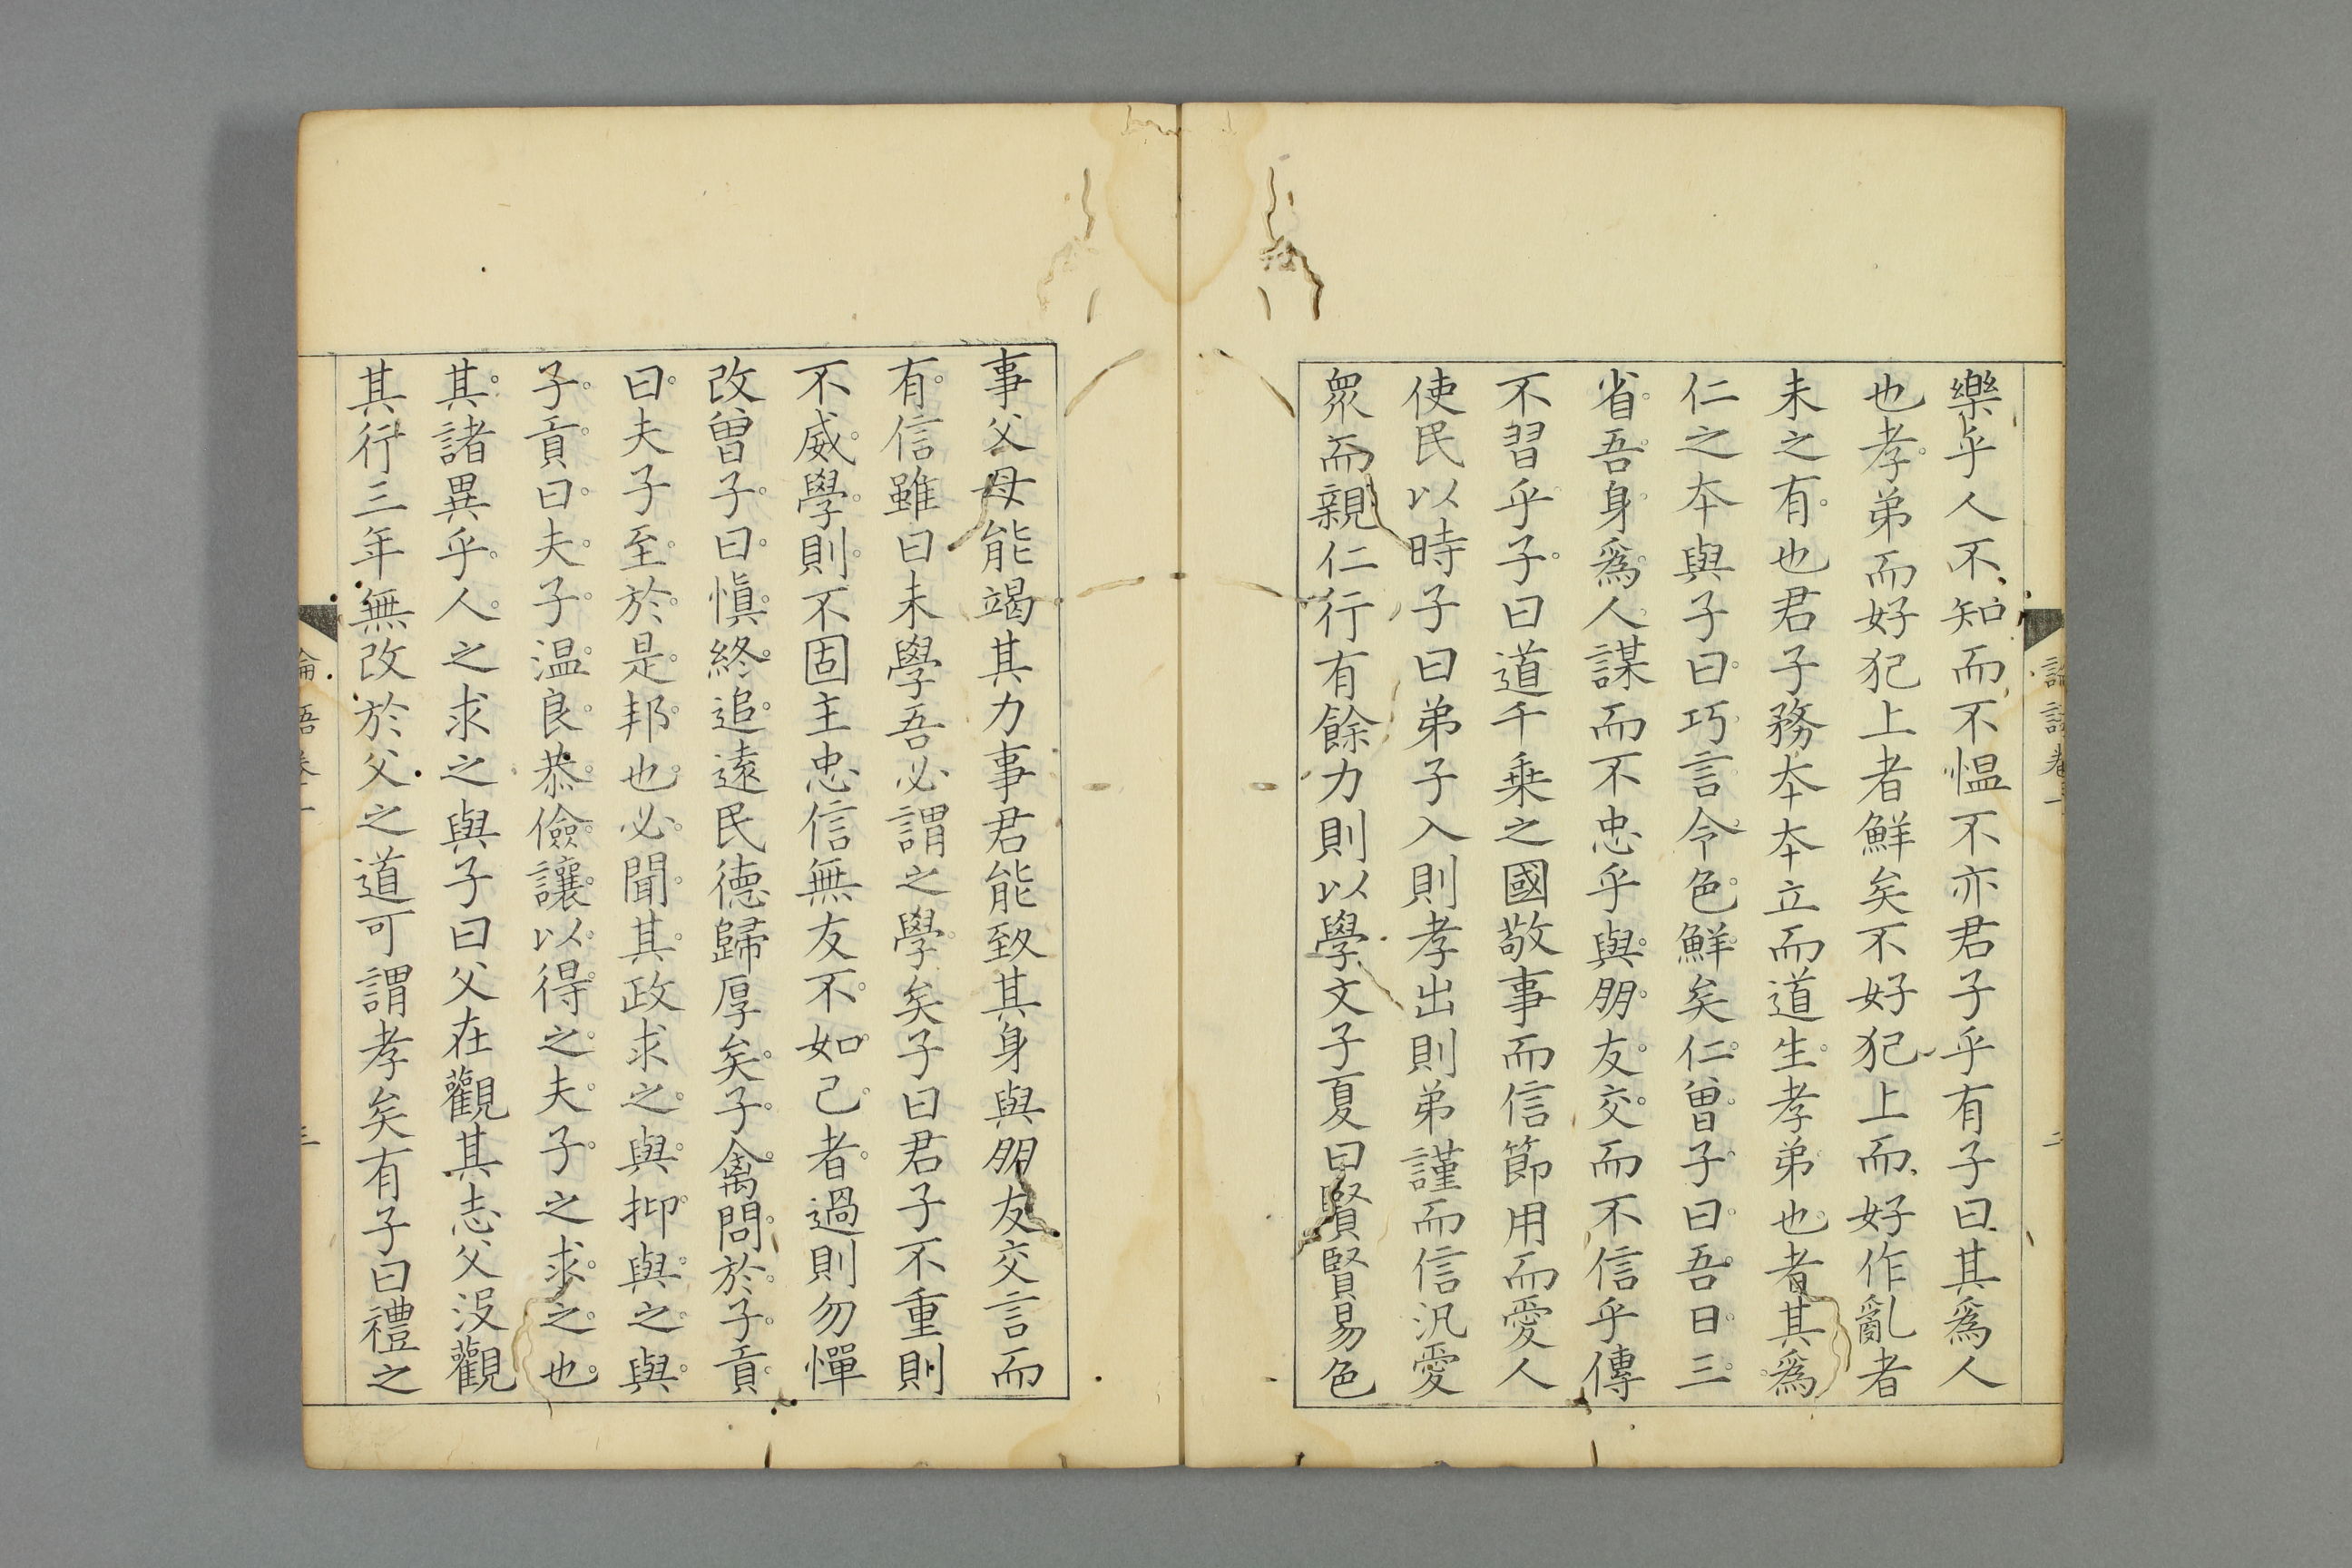 論語卷一　二
樂乎人不知而不愠不亦君子乎有子曰其爲人
也孝弟而好犯上者鮮矣不好犯上而好作亂者
未之有也君子務夲夲立而道生孝弟也者其爲
仁之夲與子曰巧言令色鮮矣仁曾子曰吾日三
省吾身爲人謀而不忠乎與朋友交而不信乎傳
不習乎子曰道千乗之國敬事而信節用而愛人
使民以時子曰弟子入則孝出則弟謹而信汎愛
眾而親仁行有餘力則以學文子夏曰賢賢易色
事父母能竭其力事君能致其身與朋友交言而
有信雖曰未學吾必謂之學矣子曰君子不重則
不威學則不固主忠信無友不如己者過則勿憚
改曾子曰愼終追遠民德歸厚矣子禽問於子貢
曰夫子至於是邦也必聞其政求之與抑與之與
子貢曰夫子温良恭儉讓以得之夫子之求之也
其諸異乎人之求之與子曰父在觀其志父沒觀
其行三年無改於父之道可謂孝矣有子曰禮之
論語卷一　三